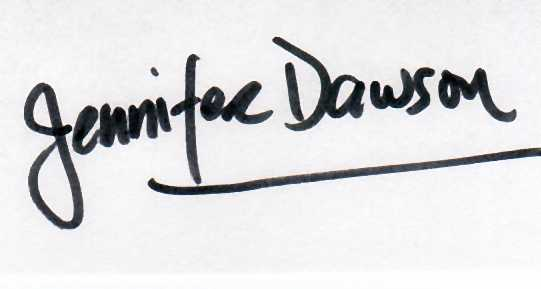 Jennifer Dawson